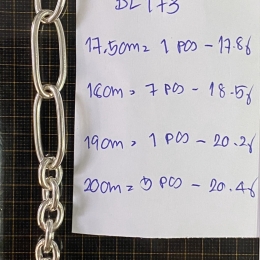 BL 173
17.5cm = 1 pcs - 17.8g
18cm = 7 pcs - 18.5g
19cm = 1 pcs - 20.2g
20cm = 5 pcs - 20.4g